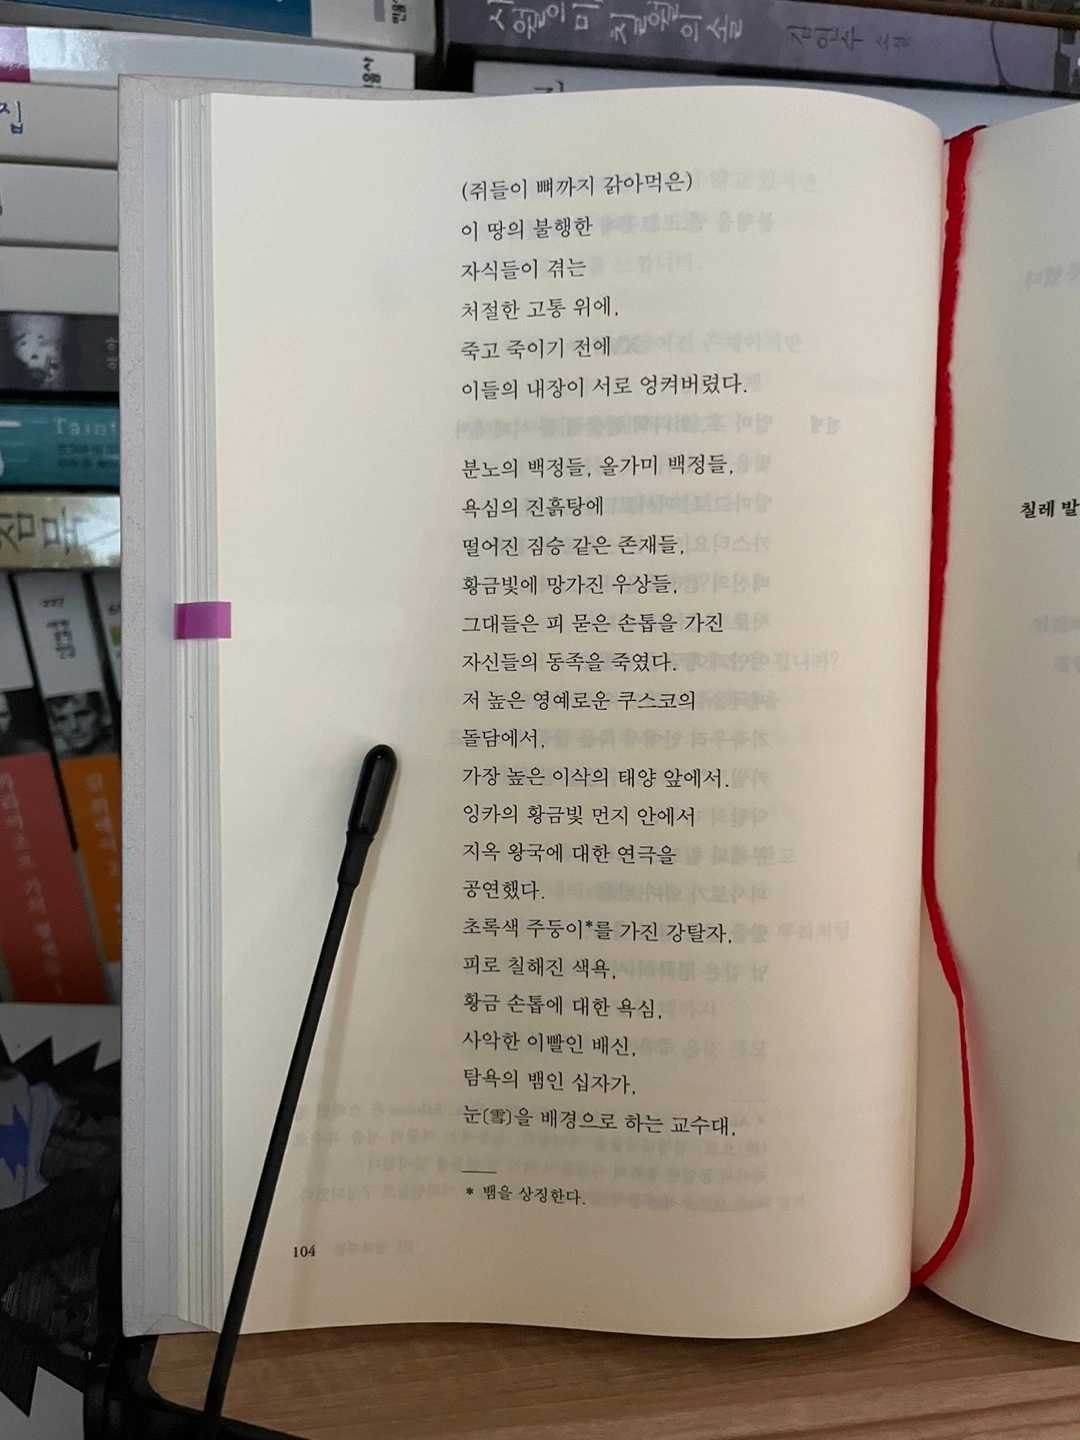 시월의
칠월의 소설
김연수 소설
민음사
집
Taint
(쥐들이 뼈까지 갉아먹은)
이 땅의 불행한
자식들이 겪는
처절한 고통 위에,
죽고 죽이기 전에
이들의 내장이 서로 엉켜버렸다.
분노의 백정들, 올가미 백정들,
욕심의 진흙탕에
떨어진 짐승 같은 존재들,
황금빛에 망가진 우상들,
그대들은 피 묻은 손톱을 가진
자신들의 동족을 죽였다.
저 높은 영예로운 쿠스코의
돌담에서,
가장 높은 이삭의 태양 앞에서.
잉카의 황금빛 먼지 안에서
지옥 왕국에 대한 연극을
공연했다.
초록색 주둥이*를 가진 강탈자,
피로 칠해진 색욕,
황금 손톱에 대한 욕심,
사악한 이빨인 배신,
탐욕의 뱀인 십자가,
눈(雪)을 배경으로 하는 교수대,
* 뱀을 상징한다.
104
칠레 발